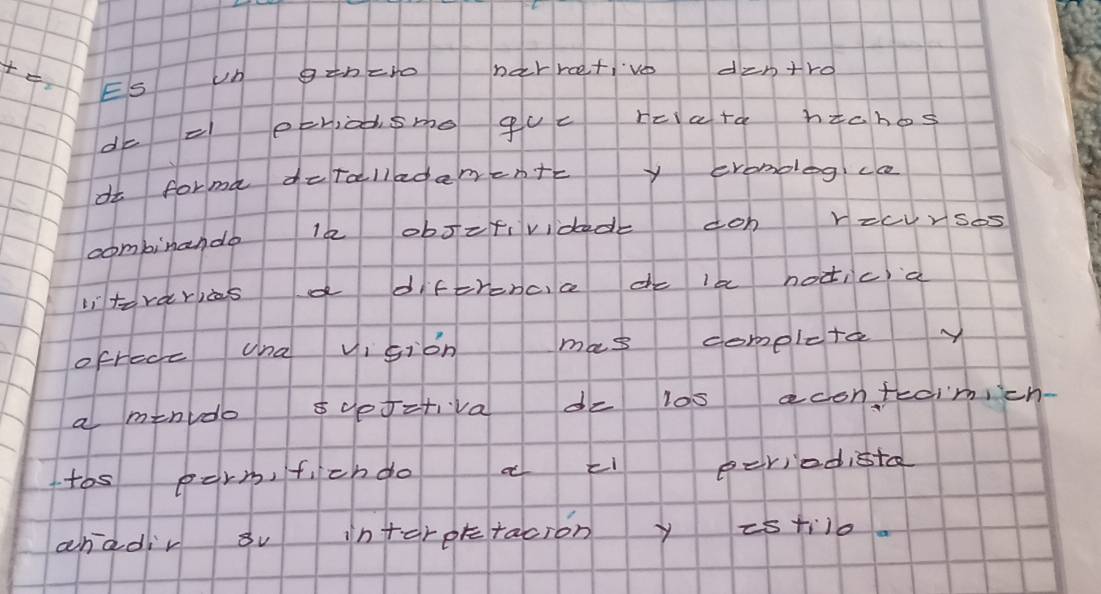 Es un genero narrativo dentro
de el periodismo que relata hechos
de forma detalladamente y cronologica
combinando la objetividade con recursos
literarios a diferencia de la noticia
ofrece una visión mas completa y
a menudo supjetiva de los acontecimien-
tos permitiendo a el periodista
añadir su interpretación y estilo.